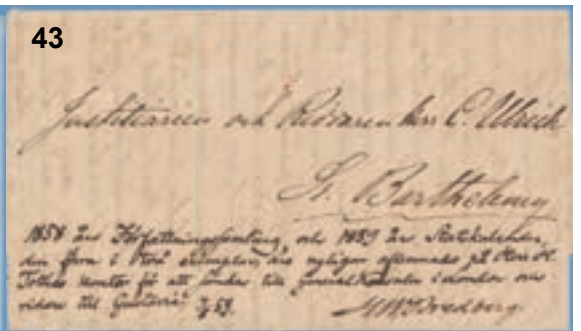 43
Justitiarien och Riddaren herr C. Ulrich
St. Barthelemy
1858 års Författningssamling, och 1859 års Statskalender,
den förra i exemplar, äro nyligen aflemnade på Herr
kontor för att sändas till i London och
vidare till Gustavia. 59.
Bredberg